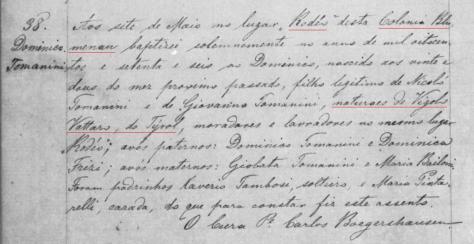 38. Aos sete de Maio no lugar Rodeo desta Colonia Blu-
Dominico menau baptizei solemnemente no anno de mil oitocen-
Tomanini tos e setenta e seis ao Dominico, nascido aos vente e
dous do mez proximo passado, filho legitimo de Nicolò
Tomanini e de Giovanina Tomanini, naturaes de Vigolo
Vattaro, do Tÿrol, moradores e lavradores no mesmo lugar
Rodeo; avós paternos: Dominicus Tomanini e Dominica
Frizi; avós maternos: Giobata Tomanini e Maria
Foram padrinhos Xaverio Tambosi, solteiro, e Maria Pinta-
relli, casada, do que para constar fiz este assento.
O Cura Pe. Carlos Boegershausen